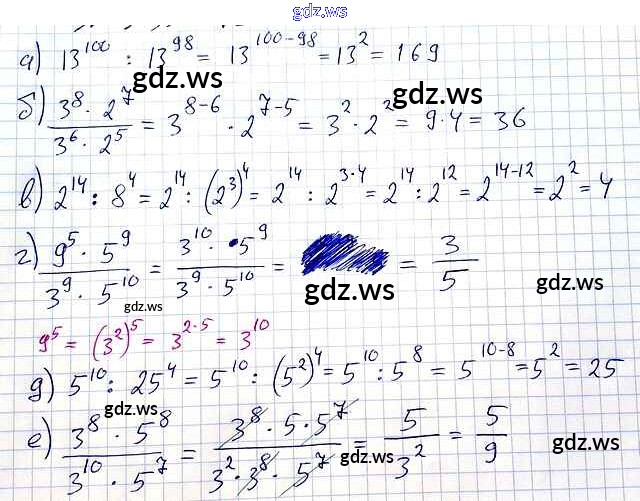 gdz.ws
а) 13^100 : 13^98 = 13^(100-98) = 13^2 = 169
gdz.ws
gdz.ws
б) (3^8 · 2^7)/(3^6 · 2^5) = 3^(8-6) · 2^(7-5) = 3^2 · 2^2 = 9·4 = 36
в) 2^14 : 8^4 = 2^14 : (2^3)^4 = 2^14 : 2^(3·4) = 2^14 : 2^12 = 2^(14-12) = 2^2 = 4
gdz.ws
г) (9^5 · 5^9)/(3^9 · 5^10) = (3^10 · 5^9)/(3^9 · 5^10) = = 3/5
gdz.ws gdz.ws gdz.ws
9^5 = (3^2)^5 = 3^(2·5) = 3^10
д) 5^10 : 25^4 = 5^10 : (5^2)^4 = 5^10 : 5^8 = 5^(10-8) = 5^2 = 25
gdz.ws
е) (3^8 · 5^8)/(3^10 · 5^7) = (3^8 · 5 · 5^7)/(3^2 · 3^8 · 5^7) = 5/3^2 = 5/9
gdz.ws gdz.ws